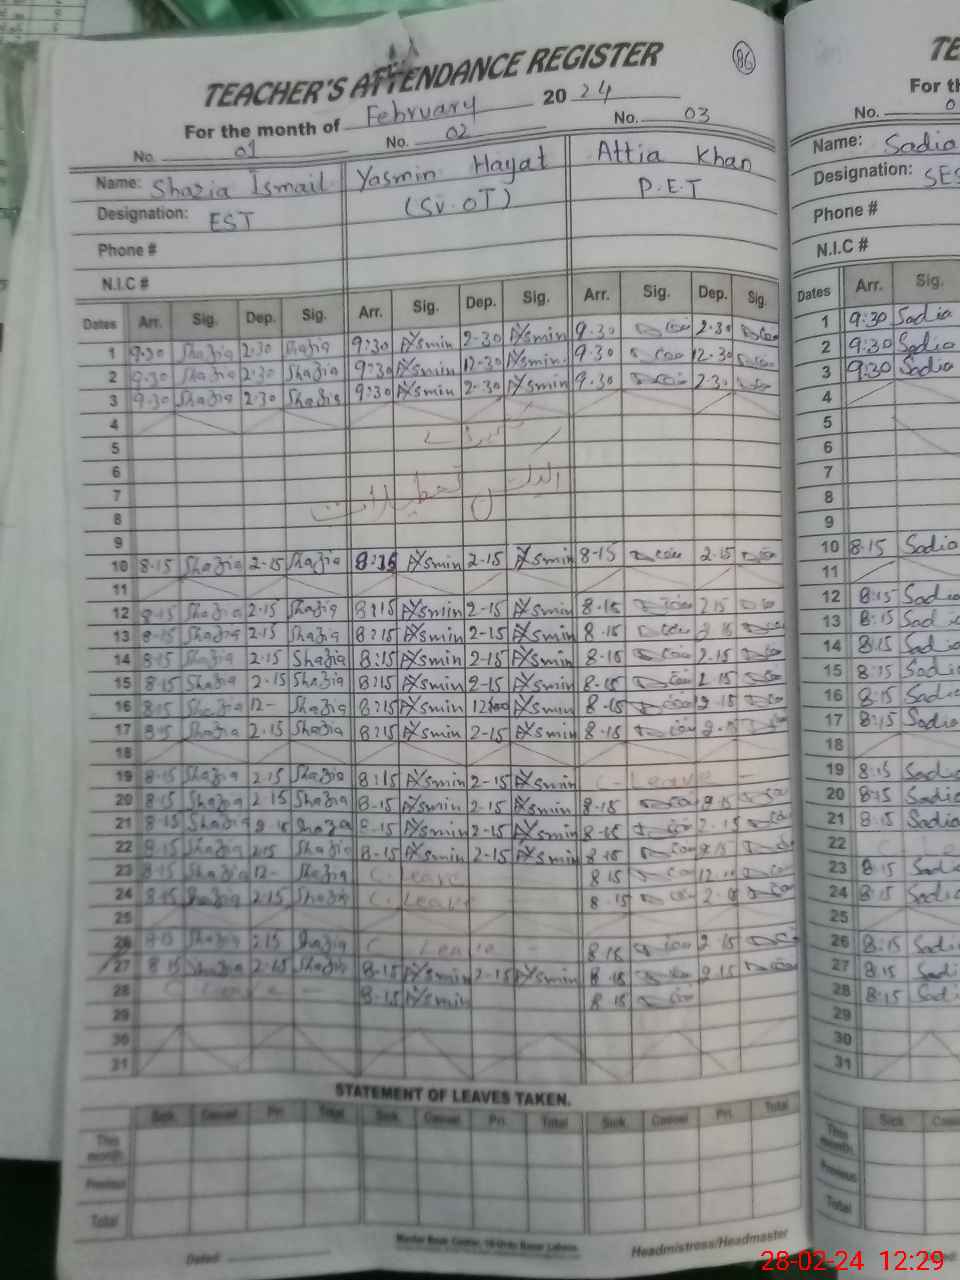 TEACHER'S ATTENDANCE REGISTER
86
TE
For the month of February 2024
For th
No. 01 No. 02 No. 03
No. 0
Name: Shazia Ismail Yasmin Hayat Attia Khan
Name: Sadia
Designation: EST (SV.OT) P.E.T
Designation: SES
Phone #
Phone #
N.I.C #
N.I.C #
Dates Arr. Sig. Dep. Sig. Arr. Sig. Dep. Sig. Arr. Sig. Dep. Sig.
Dates Arr. Sig.
1 9.30 Shazia 2.30 Shazia 9:30 Yasmin 2-30 Yasmin 9.30 2.30
1 9:30 Sadia
2 9.30 Shazia 2.30 Shazia 9:30 Yasmin 12-30 Yasmin 9.30 12.30
2 9:30 Sadia
3 9.30 Shazia 2.30 Shazia 9:30 Yasmin 2-30 Yasmin 9.30 2.30
3 9:30 Sadia
4
4
5
5
6
6
7 الیکشن تعطیلات
7
8
8
9
9
10 8.15 Shazia 2.15 Shazia 8:15 Yasmin 2-15 Yasmin 8-15 2.15
10 8.15 Sadia
11
11
12 8.15 Shazia 2.15 Shazia 8:15 Yasmin 2-15 Yasmin 8.15 2.15
12 8:15 Sadia
13 8.15 Shazia 2.15 Shazia 8:15 Yasmin 2-15 Yasmin 8.15 2.15
13 8:15 Sadia
14 8.15 Shazia 2.15 Shazia 8:15 Yasmin 2-15 Yasmin 8.15 2.15
14 8:15 Sadia
15 8.15 Shazia 2.15 Shazia 8:15 Yasmin 2-15 Yasmin 8.15 2.15
15 8:15 Sadia
16 8.15 Shazia 12- Shazia 8:15 Yasmin 12:00 Yasmin 8.15 2.15
16 8:15 Sadia
17 8.15 Shazia 2.15 Shazia 8:15 Yasmin 2-15 Yasmin 8.15
17 8:15 Sadia
18
18
19 8.15 Shazia 2.15 Shazia 8:15 Yasmin 2-15 Yasmin C-Leave -
19 8:15 Sadia
20 8.15 Shazia 2.15 Shazia 8-15 Yasmin 2-15 Yasmin 8.15 2.15
20 8:15 Sadia
21 8.15 Shazia 2.15 Shazia 8-15 Yasmin 2-15 Yasmin 8.15 2.15
21 8.15 Sadia
22 8.15 Shazia 2.15 Shazia 8-15 Yasmin 2-15 Yasmin 8.15 2.15
22
23 8.15 Shazia 12- Shazia C. Leave 8.15
23 8.15 Sadia
24 8.15 Shazia 2.15 Shazia C. Leave 8.15
24 8:15 Sadia
25
25
26 8.15 Shazia 2.15 Shazia C Leave - 8.15 2.15
26 8:15 Sadi
27 8.15 Shazia 2.15 Shazia 8-15 Yasmin 2-15 Yasmin 8.15 2.15
27 8.15 Sadi
28 C Leave - 8-15 Yasmin 8.15
28 8:15 Sad
29
29
30
30
31
31
STATEMENT OF LEAVES TAKEN.
Sick Casual Pri. Total Sick Casual Pri. Total Sick Casual Pri. Total
Sick Casu
This month
This month
Previous
Previous
Total
Total
Dated
Headmistress/Headmaster
28-02-24 12:29